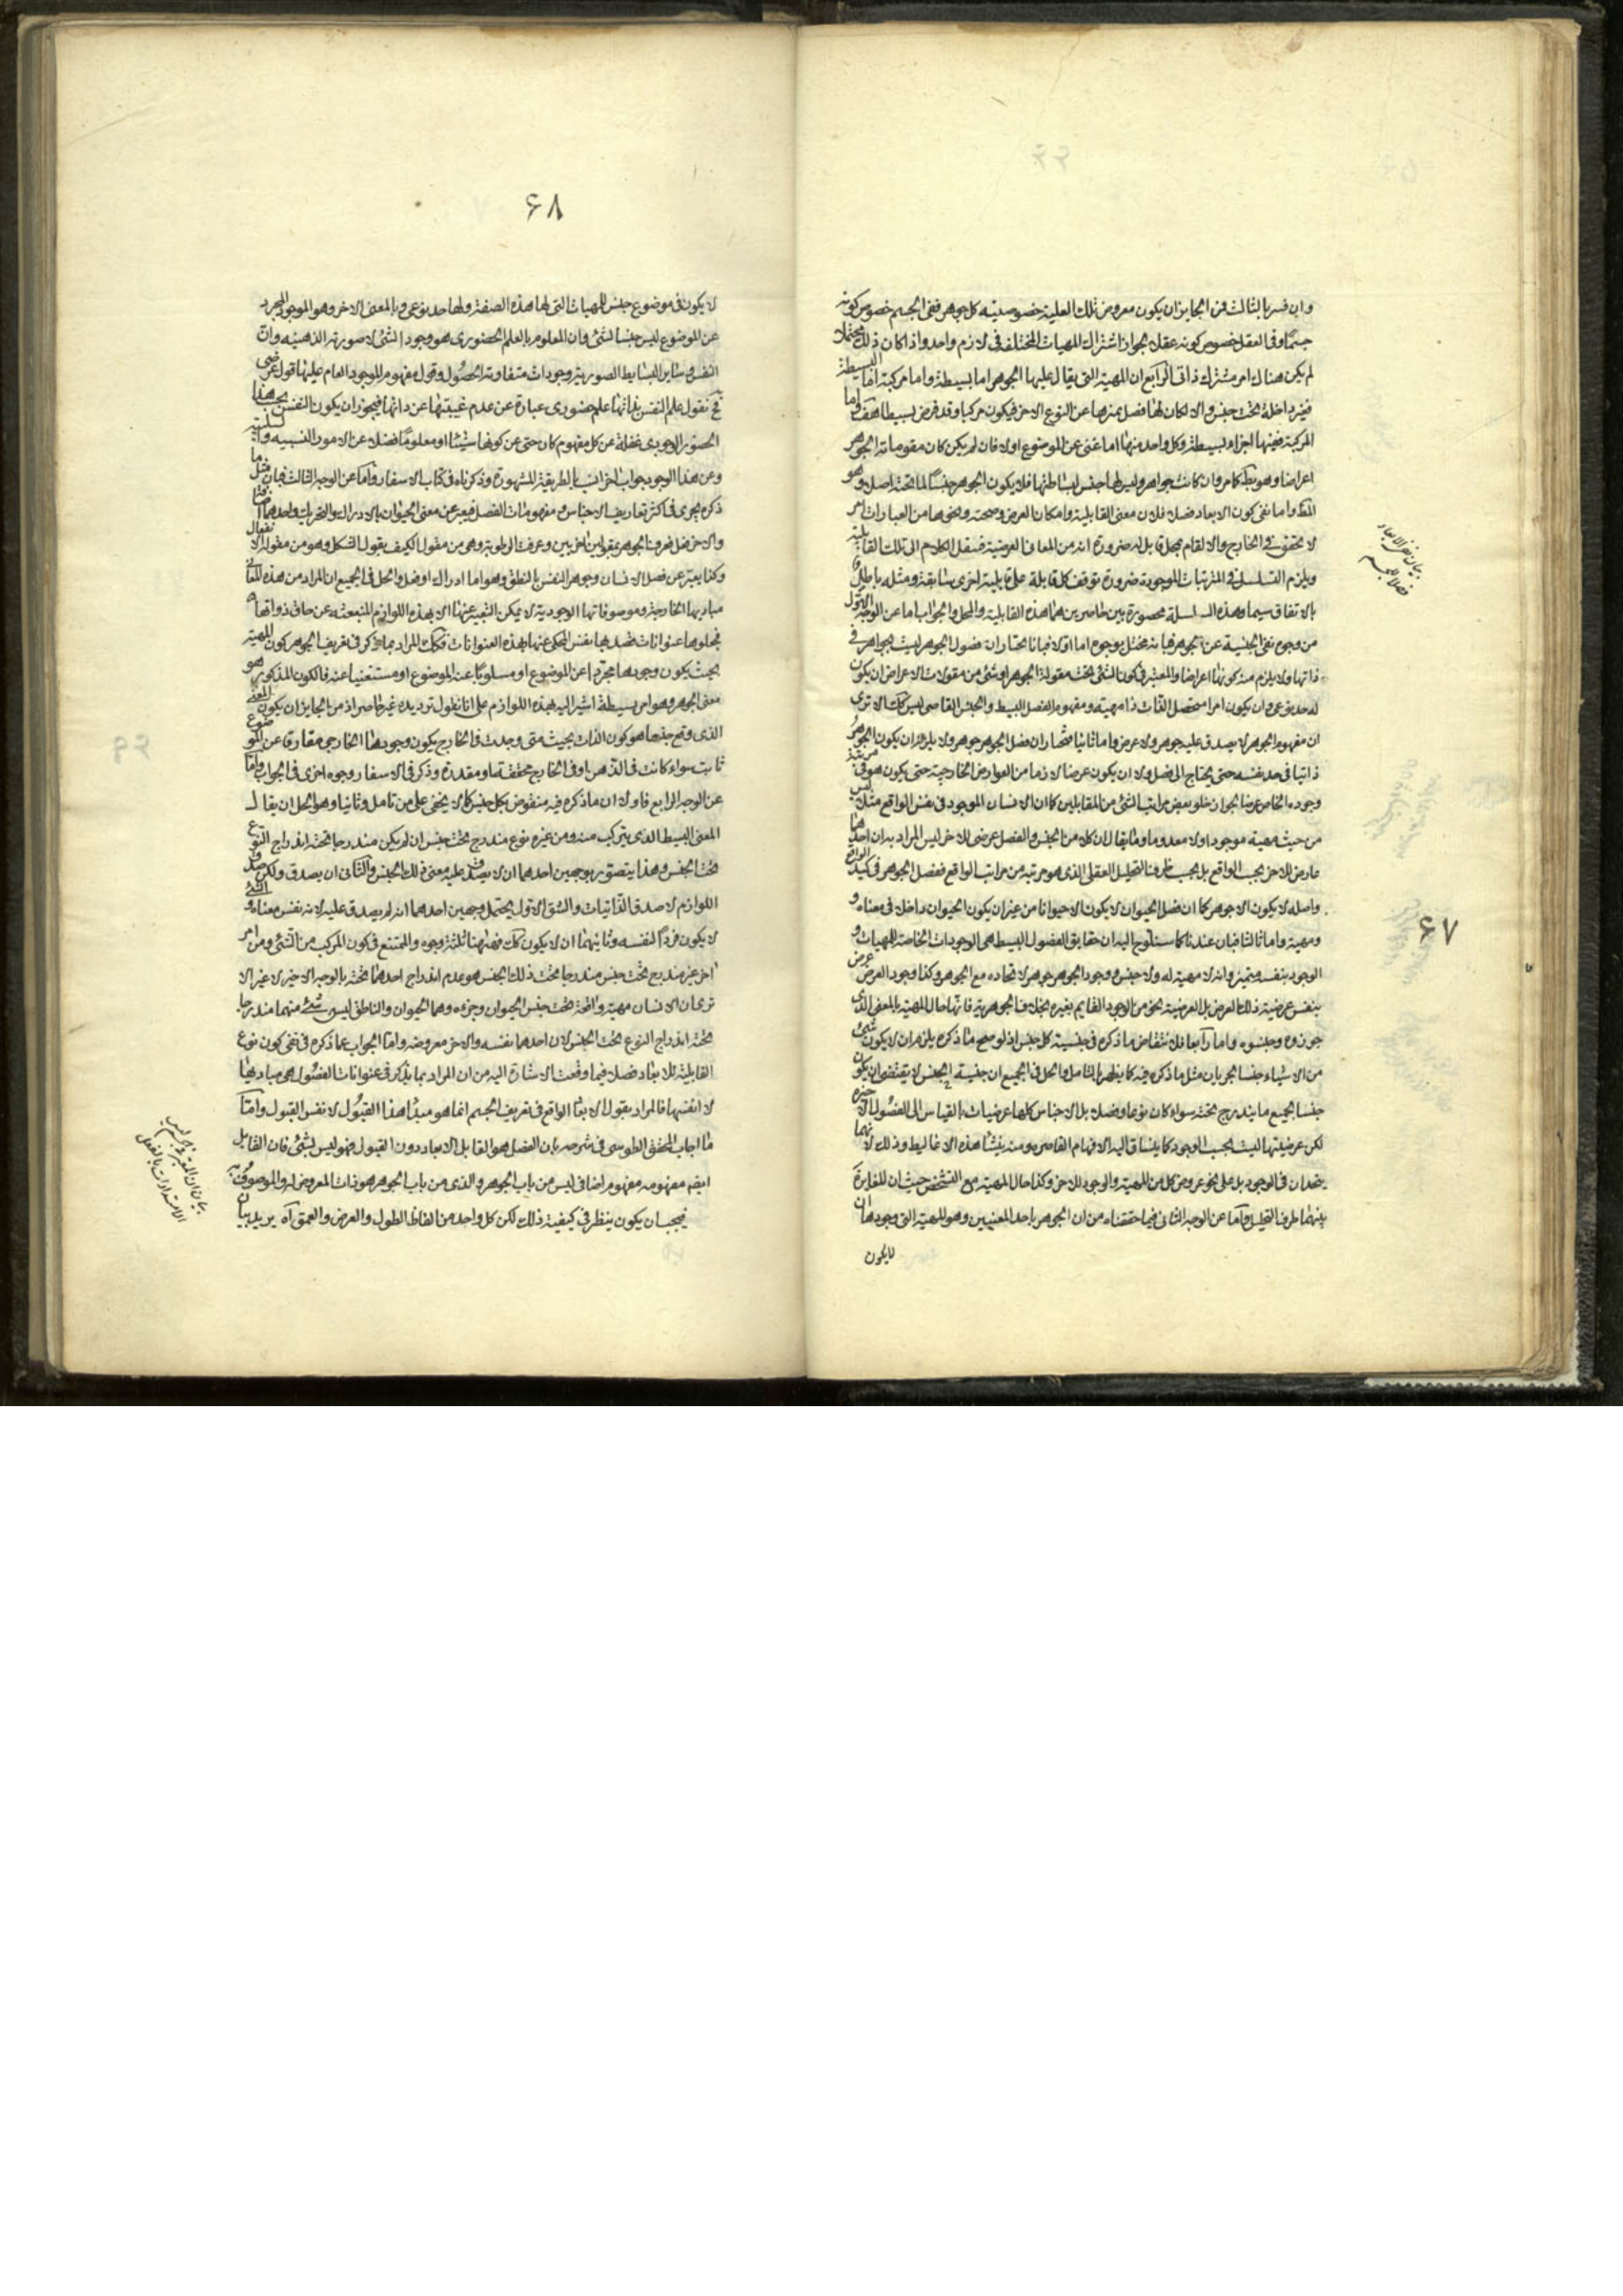 وان فسر بالثالث فمن الجايز ان يكون معروض تلك العلية خصوصيته كل جوهر ففى الجسم خصوص كونه
جسما وفى العقل خصوص كونه عقلا لجواز اشتراك المهيات المختلفة فى لازم واحد واذا كان ذلك محتملا
لم يكن هناك امر مشترك ذاتى الرابع ان المهية التى يقال عليها الجوهر اما بسيطة واما مركبة اما البسيطة
فغير داخلة تحت جنس والا لكان لها فصل يميزها عن النوع الاخر فيكون مركبا وقد فرض بسيطا هف واما
المركبة ففيها اجزاء بسيطة وكل واحد منها اما غنى عن الموضوع اولا فان لم يكن كان مقومات الجوهر
اعراضا وهو بط كما مر وان كانت جواهر وليس لها جنس لبساطتها فلا يكون الجوهر جنسا لما تحته اصلا وهو
المط واما نفى كون الابعاد فصلا فلان معنى القابلية وامكان العرض وصحته ونحوها من العبارات امر
لا تحقق له فى الخارج والا لقام بمحل قابل له ضرورة انه من المعانى العرضية فننقل الكلام الى تلك القابلية
ويلزم التسلسل فى المترتبات الموجودة ضرورة توقف كل قابلة على قابلية اخرى سابقة ومثله باطل
بالاتفاق سيما وهذه السلسلة محصورة بين حاصرين هما هذه القابلية والمحل والجواب اما عن الوجه الاول
من وجوه نفى الجنسية عن الجوهر فبانه مختل بوجوه اما اولا فبانا نختار ان فصول الجوهر ليست بجواهر فى
ذاتها ولا يلزم منه كونها اعراضا والمعتبر فى كون الشئ تحت مقولة الجوهر او شئ من مقولات الاعراض ان يكون
له حد نوعى وان يكون امرا متحصل الذات ذا مهية ومفهوم الفصل البسيط والجنس القاصى ليس كك الا ترى
ان مفهوم الجوهر لا يصدق عليه جوهر ولا عرض واما ثانيا فنختار ان فصل الجوهر جوهر ولا يلزم ان يكون الجوهر
ذاتيا فى حد نفسه حتى يحتاج الى فصل ولا ان يكون عرضا لازما من العوارض الخارجية حتى يكون هو فى مرتبة
وجوده الخاص عريا لجواز خلو بعض مراتب الشئ من المقابلين كما ان الانسان الموجود فى نفس الواقع مثلا ليس
من حيث مهية موجودا ولا معدوما وما يقال ان كلا من الجنس والفصل عرضى للاخر ليس المراد به ان احدهما
عارض للاخر بحسب الواقع بل بحسب ظرف التحليل العقلى الذى هو مرتبه من مراتب الواقع ففصل الجوهر فى
واصله لا يكون الا جوهر كما ان فصل الحيوان لا يكون الا حيوانا من غير ان يكون الحيوان داخلا فى معناه و
ومهية واما ثالثا فبان عندنا كما سنلوح اليه ان حقايق الفصول البسيطه هى الوجودات الخاصة للمهيات و
الوجود بنفسه متميز وانه لا مهية له ولا جنس ووجود الجوهر جوهر لاتحاده مع الجوهر وكذا وجود العرض عرض
بنفس عرضية ذلك العرض بل العرضية نحو من الوجود القايم بغيره بخلاف الجوهرية فانها حال المهية بالمعنى الذى
جوزوه وجنسوه واما رابعا فلانتقاض ما ذكره فى جنسية كل جنس اذ لو صح ما ذكره يلزم ان لا يكون شئ
من الاشياء جنسا لجريان مثل ما ذكره فيه كما يظهر بالتامل والحل فى الجميع ان جنسية الجنس لا يقتضى ان يكون
جنسا لجميع ما يندرج تحته سواء كان نوعا وفصلا بل الاجناس كلها عرضيات بالقياس الى الفصول الاخيره
لكن عرضيتها ليست بحسب الوجود كما ينساق اليه الافهام القاصره ومنه ينشأ هذه الاغاليط وذلك لانهما
يتحدان فى الوجود بل على نحو عروض كل من المهية والوجود للاخر وكذا حال المهية مع التشخص حيث ان المغايرة
بينهما ظرف التحليل واما عن الوجه الثانى فبما حققناه من ان الجوهر باحد المعنيين وهو للمهية التى وجودها ان
لايكون
بيان نفى الابعاد
فصلا للجسم
۶۷
۶۸
لا يكون فى موضوع جنس للمهيات التى لها هذه الصفة ولها حد نوعى وبالمعنى الاخر وهو الموجود المجرد
عن الموضوع ليس جنسا لشئ وان المعلوم بالعلم الحضورى هو وجود الشئ لا صورته الذهنيه وان
النفس وساير البسايط الصوريه وجودات متفاوته الحصول وقول مفهوم الموجود العام عليها قول عرضى
فح نقول علم النفس بذاتها علم حضورى عبارة عن عدم غيبتها عن ذاتها فيجوز ان يكون النفس بحسب هذا
الحضور الوجودى غفلة عن كل مفهوم كان حتى عن كونها شيئا او معلوما فضلا عن الامور النسبيه والسلبيه
وعن هذا الوجه جواب اخر انسب بالطريقة المشهورة وذكرناه فى كتاب الاسفار واما عن الوجه الثالث فبان مثل ما
ذكره يجرى فى اكثر تعاريف الاجناس ومفهومات الفصل فيعبر عن معنى الحيوان بالادراك والتحريك واحدهما
والاخر فعل فعرفنا الجوهر بمقولتين اخريين وعرفت الرطوبه وهى من مقولة الكيف بقبول الشكل وهو من مقولة الانفعال
وكذا يعبر عن فصل الانسان وجوهر النفس بالنطق وهو اما ادراك او فعل والحل فى الجميع ان المراد من هذه المعانى
مباديها الخارجة وموصوفاتها الوجودية لا يمكن التعبير عنها الا بهذه اللوازم المنبعثه عن حاق ذواتها
فجعلوها عنوانات قصد بها نفس المحكى عنها بهذه العنوانات فكك المراد بما ذكر فى تعريف الجوهر كون المهية
بحيث يكون وجودها مجردا عن الموضوع او مسلوبا عنه الموضوع او مستغنيا عنه فالكون المذكور هو
معنى الجوهر وهو امر بسيطة اشير اليه بهذه اللوازم على انا نقول ترديده غير حاصر اذ من الجايز ان يكون المعنى
الذى وقع جنسا هو كون الذات بحيث متى وجدت فى الخارج يكون وجودها الخارجى مفارقا عن الموضوع
ثابت سواء كانت فى الذهن او فى الخارج محققة او مقدرة وذكر فى الاسفار وجوه اخرى فى الجواب واما
عن الوجه الرابع فاولا ان ما ذكره فيه منقوض بكل جنس كما لا يخفى على من تامل وثانيا وهو الحل ان يقال
المعنى البسيط الذى يتركب منه ومن غيره نوع مندرج تحت جنس ان لم يكن مندرجا تحته اندراج النوع
تحت الجنس وهذا يتصور بوجهين احدهما ان لا يصدق عليه معنى ذلك الجنس والثانى ان يصدق ولكن صدق
اللوازم لا صدق الذاتيات والشق الاول يحتمل وجهين احدهما انه لم يصدق عليه لانه نفس معناه والشئ
لا يكون فردا لنفسه وثانيهما ان لا يكون كك فههنا ثلثة وجوه والممتنع فى كون المركب من الشئ ومن امر
اخر غير مندرج تحت جنس مندرجا تحت ذلك الجنس هو عدم اندراج احدهما تحته بالوجه الاخير لا غير الا
ترى ان الانسان مهية واقعة تحت جنس الحيوان وجزءه وهما الحيوان والناطق ليس شئ منهما مندرجا
تحته اندراج النوع تحت الجنس لان احدهما نفسه والاخر معروضه واما الجواب عما ذكره فى نفى كون نوع
القابلية للابعاد فصلا فبما وقعت الاشارة اليه من ان المراد بما يذكر فى عنوانات الفصول هى مباديها
لا انفسها فالمراد بقبول الابعاد الواقع فى تعريف الجسم انما هو مبدأ هذا القبول لا نفس القبول واما
ما اجاب المحقق الطوسى فى شرحه بان الفصل هو القابل الابعاد دون القبول فهو ليس بشئ فان القابل
ايضم مفهومه مفهوم اضافى ليس من باب الجوهر والذى من باب الجوهر هو ذات المعروض له والموصوف به
فيجب ان يكون ينظر فى كيفية ذلك لكن كل واحد من الفاظ الطول والعرض والعمق آه يريد بيان
بيان ان المعتبر فى الجسم ليس
الامتدادات بالفعل